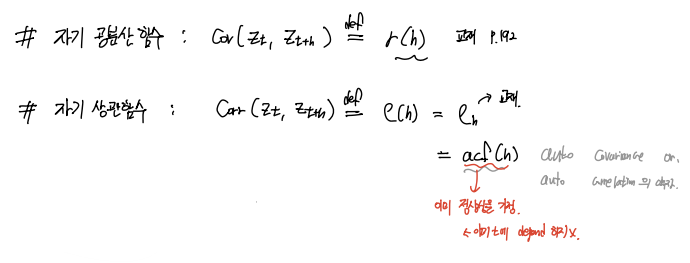 # 자기 공분산 함수 : Cov(Zt, Zt+h) def= γ(h) 교재 P.192
# 자기 상관함수 : Corr(Zt, Zt+h) def= ρ(h) = ρh → 교재.
= acf(h) auto covariance or.
auto correlation의 약자.
이미 정상성을 가정.
← 여기 t에 depend 하지 X.